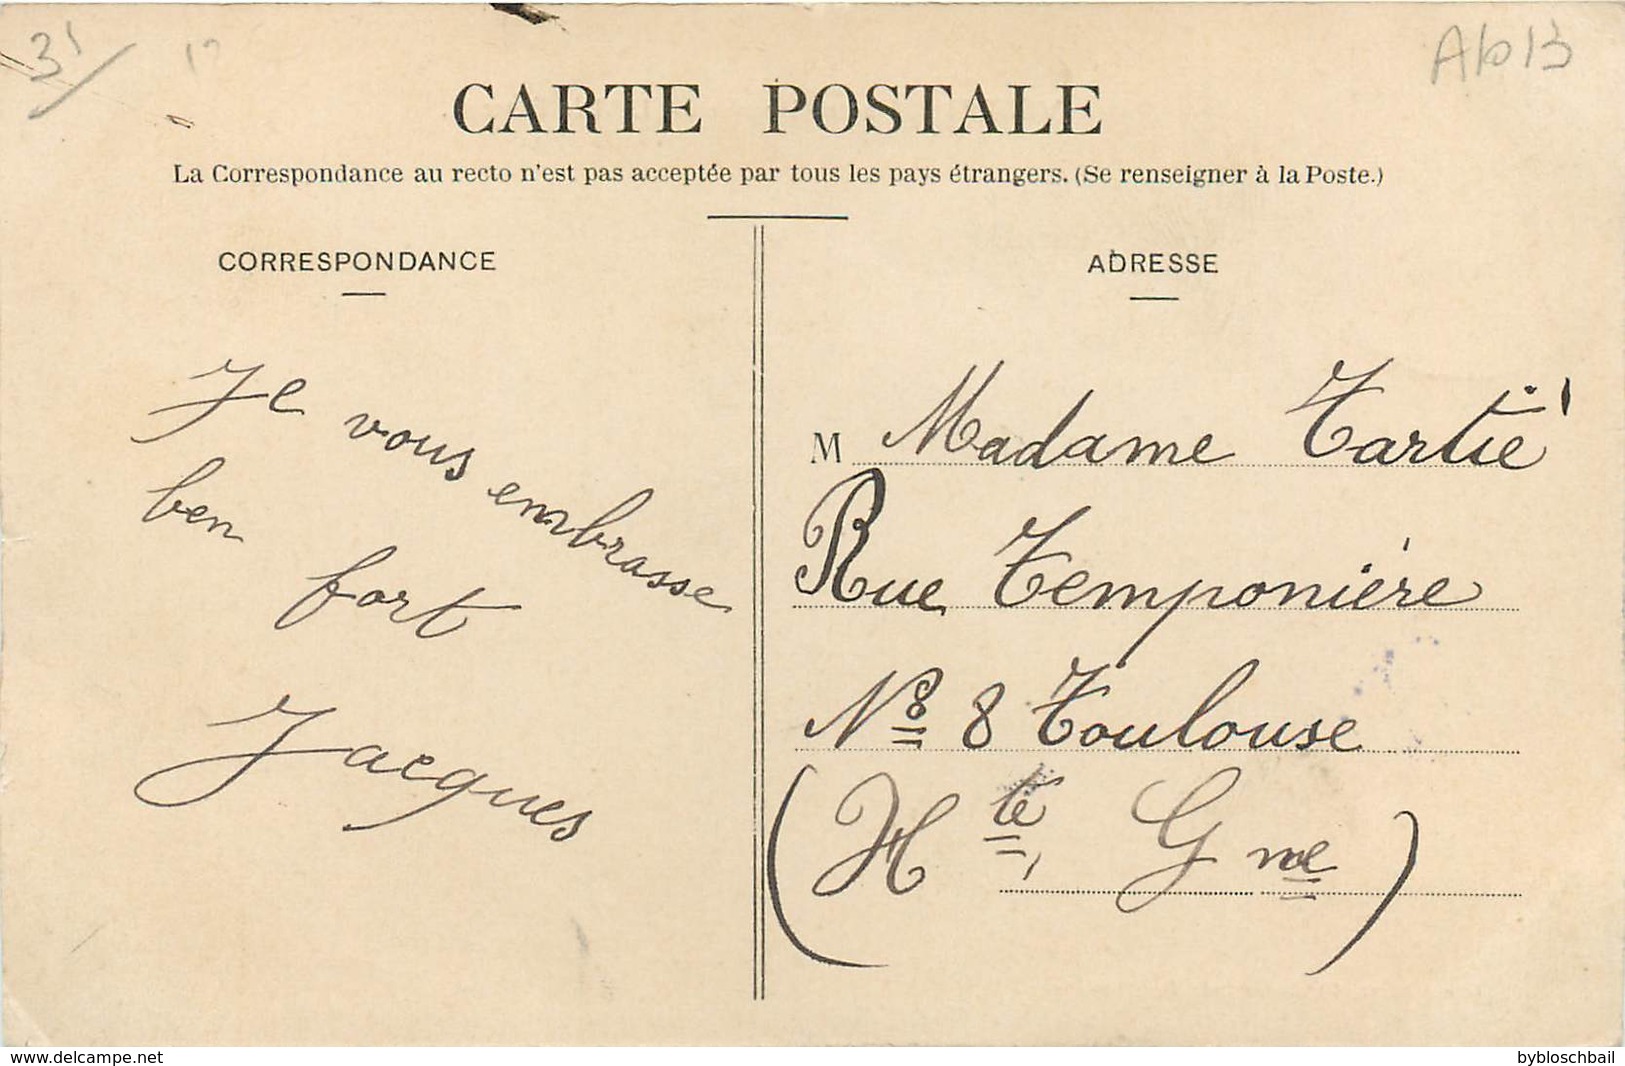 CARTE POSTALE
La Correspondance au recto n'est pas acceptée par tous les pays étrangers. (Se renseigner à la Poste.)
CORRESPONDANCE
Je vous embrasse
ben fort
Jacques
ADRESSE
M Madame Tartié
Rue Temponière
N° 8 Toulouse
(Hte Gne)
www.delcampe.net
bybloschbail